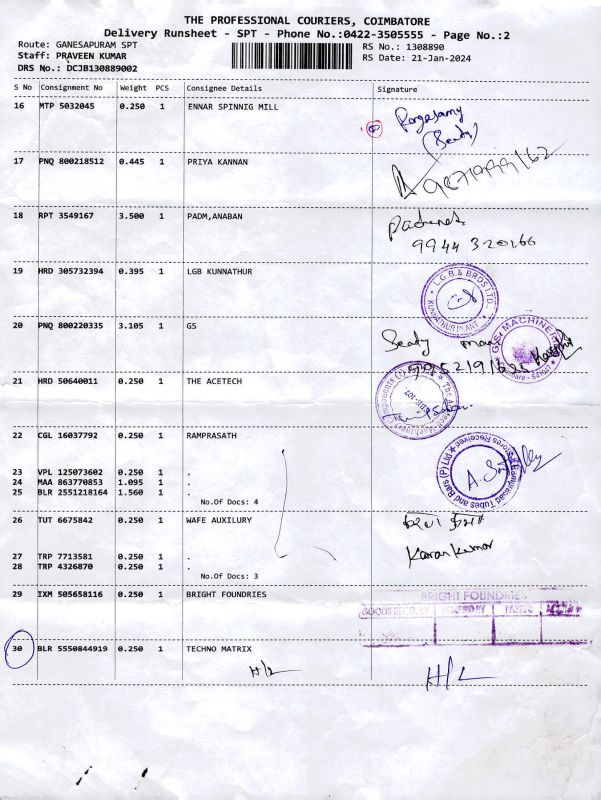 THE PROFESSIONAL COURIERS, COIMBATORE
Delivery Runsheet - SPT - Phone No.:0422-3505555 - Page No.:2
Route: GANESAPURAM SPT RS No.: 1308890
Staff: PRAVEEN KUMAR RS Date: 21-Jan-2024
DRS No.: DCJB130889002
S No Consignment No Weight PCS Consignee Details Signature
16 MTP 5032045 0.250 1 ENNAR SPINNIG MILL
17 PNQ 800218512 0.445 1 PRIYA KANNAN
18 RPT 3549167 3.500 1 PADM,ANABAN
19 HRD 305732394 0.395 1 LGB KUNNATHUR
L.G.B. & BROS LTD.
KUNNATHUR PLANT
20 PNQ 800220335 3.105 1 GS
21 HRD 50640011 0.250 1 THE ACETECH
22 CGL 16037792 0.250 1 RAMPRASATH
23 VPL 125073602 0.250 1 .
24 MAA 863770853 1.095 1 .
25 BLR 2551218164 1.560 1 .
No.Of Docs: 4
26 TUT 6675842 0.250 1 WAFE AUXILURY
Karan Kumar
27 TRP 7713581 0.250 1 .
28 TRP 4326870 0.250 1 .
No.Of Docs: 3
29 IXM 505658116 0.250 1 BRIGHT FOUNDRIES
BRIGHT FOUNDRIES
30 BLR 5550844919 0.250 1 TECHNO MATRIX
H/L H/L